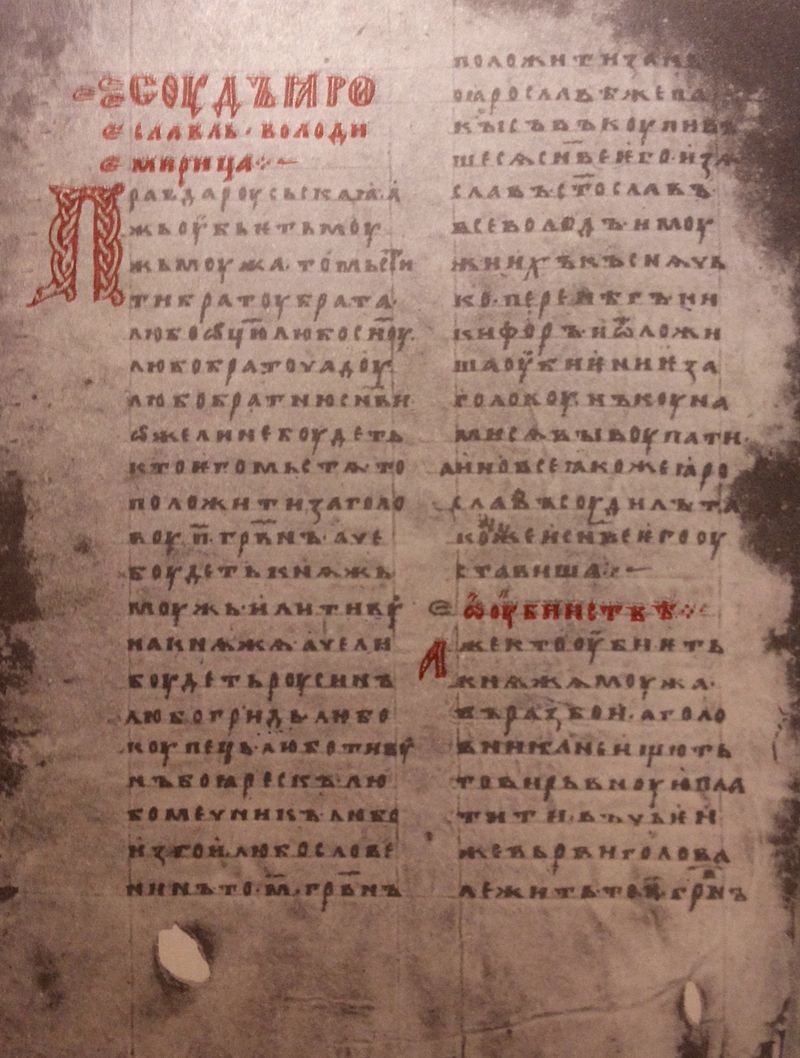 СОУДЪ ꙖРО
СЛАВЛЬ · ВОЛОДИ
МИРИЦА
Правда роусьскаꙗ · а
жь оубьѥть моу
жь моужа · то мьсти
ти братоу брата ·
любо ѿцю любо сноу
любо братоучадоу
любо братню снви
ѡже ли не боудеть
кто ѥго мьстѧ то
положити за голо
воу · п҃ · грвнъ · аче
боудеть кнѧжь
моужь · или тивоу
на кнѧжа · аче ли
боудеть роусинъ
любо гридь · любо
коупець · любо тивоу
нъ боꙗрескъ · лю
бо мечникъ · любо
изгои · любо слове
нинъ то · м҃ · грвнъ
положити за нь
по ꙗрославѣ же па
кы съвъкоупивъ
шесѧ снве ѥго · иза
славъ · стославъ ·
всеволодъ · и моу
жи ихъ къснѧчь
ко · перенѣгъ · ни
кифоръ · и ѿложи
ша оубиѥниѥ за
головоу · нъ коуна
ми сѧ выкоупати ·
а ино все ꙗкоже ꙗро
славъ соудилъ та
коже и снве ѥго оу
ставиша
ѡ оубииствѣ
Аже кто оубиѥть
кнѧжа моужа ·
въ разбои · а голо
вника не ищють
то вирьвноую пла
тити · въ чьѥи
же вьрви голова
лежить то · п҃ · грвнъ